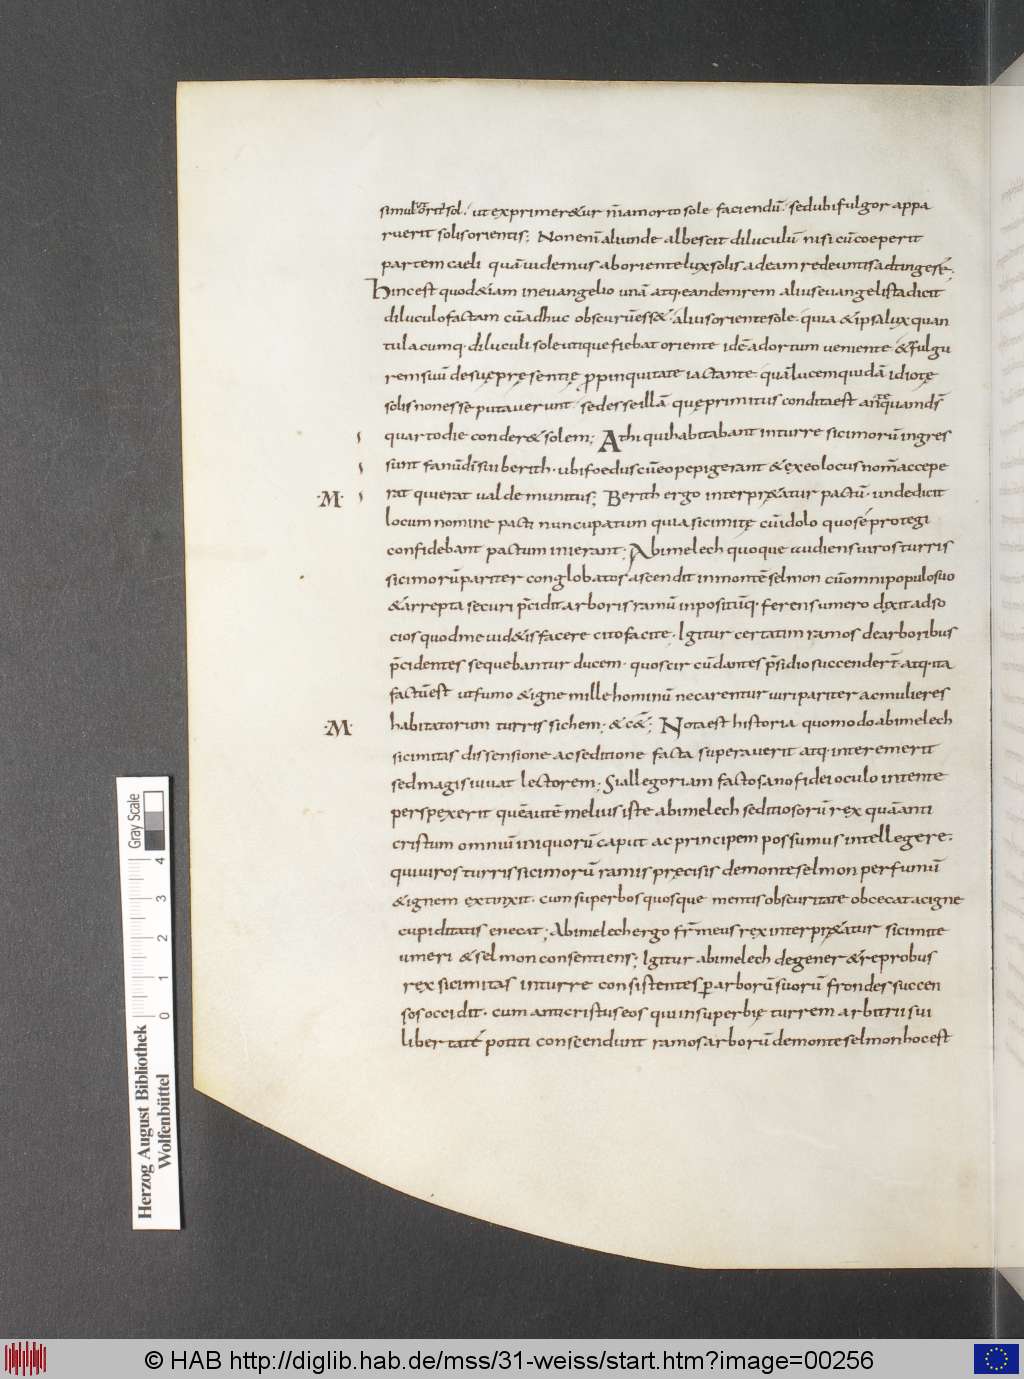 simul orit͛ sol. ut exprimer&ur n̄iam orto sole faciendū. sed ubi fulgor appa
ruerit solis orientis; Non enī aliunde albescit diluculū nisi cū coeperit
partem caeli quā uidemus ab oriente lux solis ad eam redeuntis adtingere;
Hinc est quod &iam in euangelio unā atq· eandem rem alius euangelista dicit
diluculo factam cū adhuc obscurū ess&· alius oriente sole· quia & ipsa lux quan
tulacumq· diluculi sole utique fiebat oriente idē ad ortum ueniente & fulgu
rem suū de suę pręsentię p̱pinquitate iactante· quā lucem quidā idiotę
solis non esse putauerunt· sed esse illā quę primitus condita est antequam ds̄
quarto die conder& solem; At hi qui habitabant in turre sicimorū ingres
sunt fanū dī sui berith· ubi foedus cū eo pepigerant & ex eo locus nom̄ accepe
rat qui erat ualde munitus; Berith ergo interpr&atur pactū· unde dicit
·M·
locum nomine pacti nuncupatum quia sicimitę cū idolo quo se protegi
confidebant pactum inierant; Abimelech quoque audiens uiros turris
sicimorū pariter conglobatos ascendit in montē selmon cū omni populo suo
& arrepta securi p̄cidit arboris ramū inpositūq· ferens umero dixit ad so
cios quod me uid&is facere cito facite· Igitur certatim ramos de arboribus
p̄cidentes sequebantur ducem· quos circūdantes p̄sidio succender̄t atq· ita
factū est ut fumo & igne mille hominū necarentur uiri pariter ac mulieres
habitatorum turris sichem; & c&; Nota est historia quomodo abimelech
·M·
sicimitas dissensione ac seditione facta superauerit atq· interemerit
sed magis iuuat lectorem; Si allegoriam facto sano fidei oculo intente
perspexerit quē autē melius iste abimelech seditiosorū rex quā anti
cristum omniū iniquorū caput ac principem possumus intellegere;
qui uiros turris sicimorū ramis pręcisis de monte selmon per fumū
& ignem extinxit· cum superbos quosque mentis obscuritate obcecat ac igne
cupiditatis enecat; Abimelech ergo fr̄ meus rex interpr&atur sicimite
umeri & selmon consentiens; Igitur abimelech degener & reprobus
rex sicimitas in turre consistentes p̱ arborū suorū frondes succen
sos occidit· cum anticristus eos qui in superbię turrem arbitrii sui
libertatē potiti conscendunt ramos arborū de monte selmon hoc est
Gray Scale
0 1 2 3 4
Herzog August Bibliothek
Wolfenbüttel
© HAB http://diglib.hab.de/mss/31-weiss/start.htm?image=00256